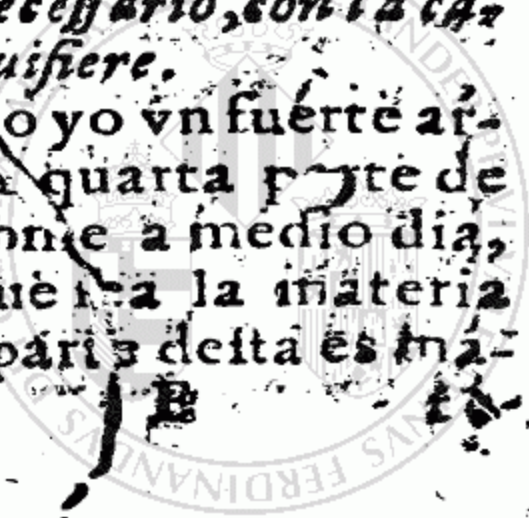 ecessario, con la ca-
uisiere.
o yo vn fuerte ar-
quarta parte de
onie a medio dia,
ue sea la materia
parte desta es ma-
E